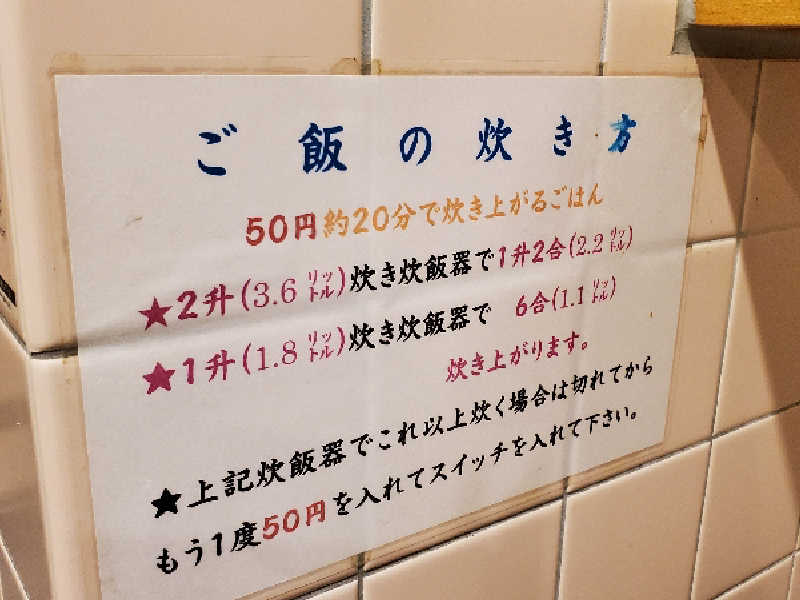 ご飯の炊き方
50円約20分で炊き上がるごはん
★2升(3.6㍑)炊き炊飯器で1升2合(2.2㍑)
★1升(1.8㍑)炊き炊飯器で 6合(1.1㍑)
炊き上がります。
★上記炊飯器でこれ以上炊く場合は切れてから
もう1度50円を入れてスイッチを入れて下さい。